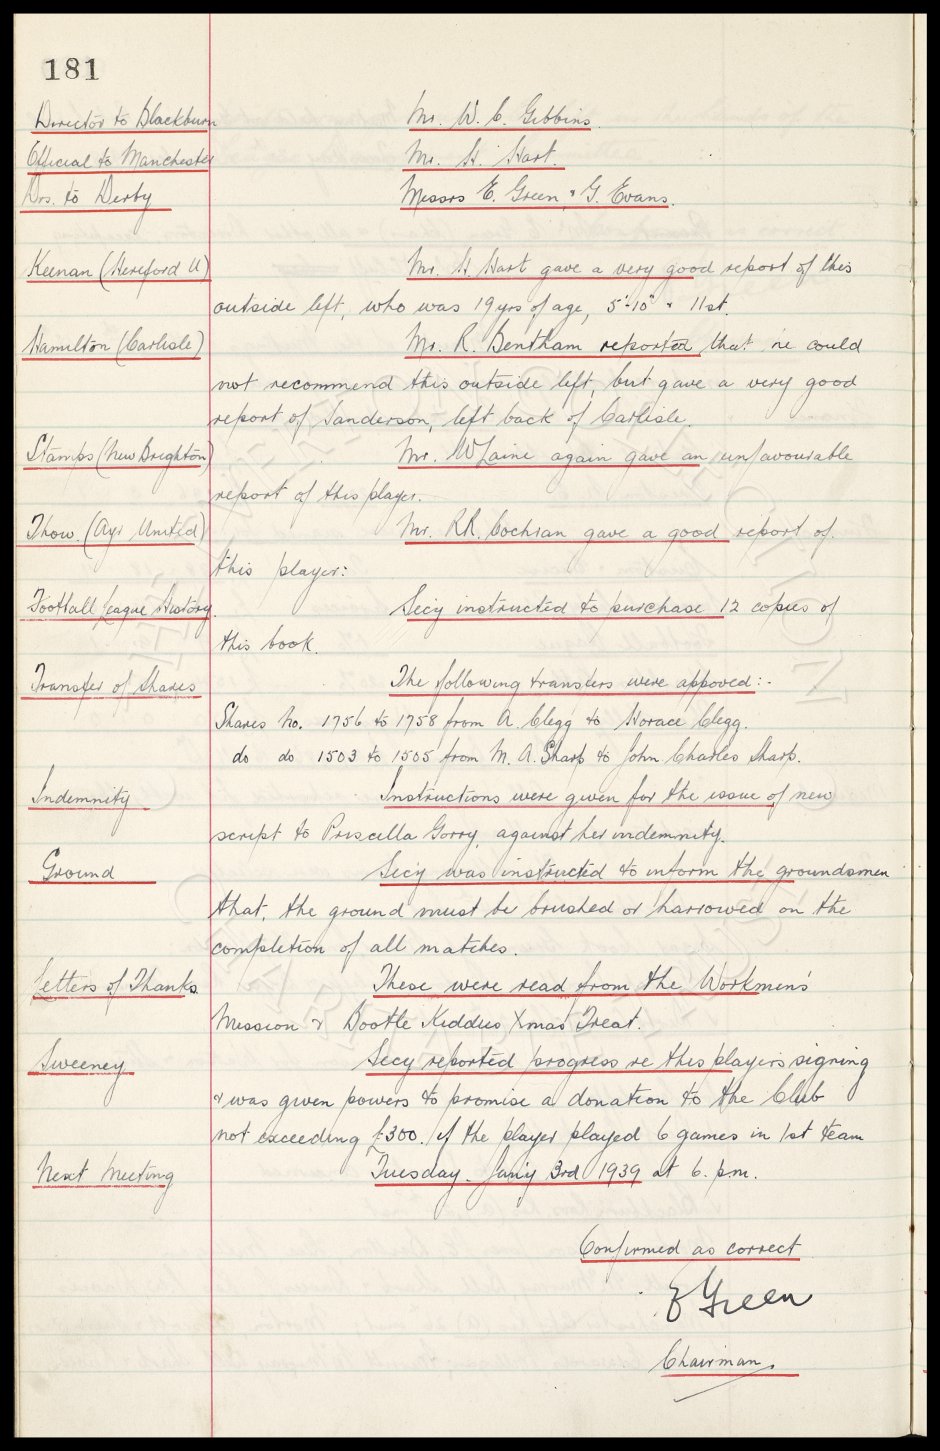 181
Director to Blackburn Mr. W. C. Gibbins.
Official to Manchester Mr. H. Hart.
Drs. to Derby Messrs E. Green, & G. Evans.
Keenan (Hereford U) Mr. H. Hart gave a very good report of this
outside left, who was 19 yrs of age, 5'-10" & 11st.
Hamilton (Carlisle) Mr. R. Bentham reported that he could
not recommend this outside left, but gave a very good
report of Sanderson, left back of Carlisle.
Stamps (New Brighton) Mr. McLaine again gave an unfavourable
report of this player.
Thow. (Ayr United) Mr. RR. Cochran gave a good report of
this player:
Football League History. Secy instructed to purchase 12 copies of
this book.
Transfer of Shares The following transfers were appoved:-
Shares No. 1756 to 1758 from A. Clegg to Horace Clegg.
do do 1503 to 1505 from M. A. Sharp to John Charles Sharp.
Indemnity Instructions were given for the issue of new
script to Priscilla Gorry, against her indemnity.
Ground Secy was instructed to inform the groundsmen
that, the ground must be brushed or harrowed on the
completion of all matches.
Letters of Thanks These were read from the Workmens'
Mission & Bootle Kiddies Xmas Treat.
Sweeney Secy reported progress re this players signing
& was given powers to promise a donation to the Club
not exceeding £300. if the player played 6 games in 1st team
Next Meeting Tuesday. Jany 3rd 1939 at 6. p.m.
Confirmed as correct
E Green
Chairman.